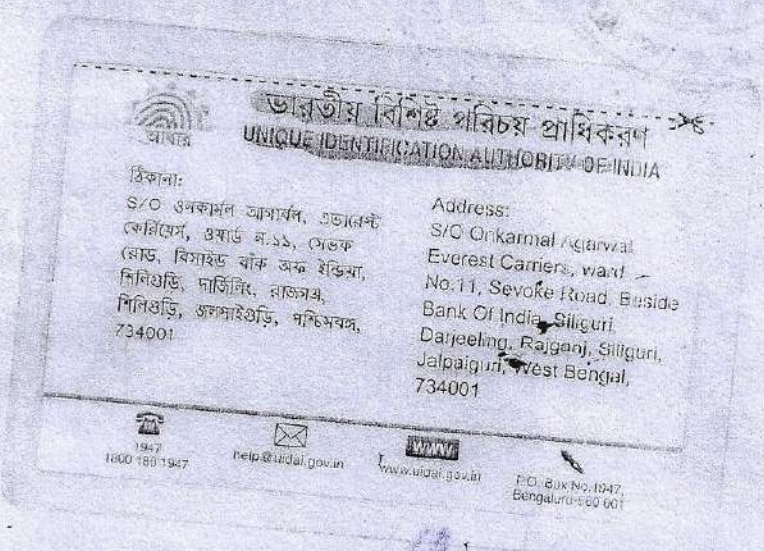 ভারতীয় বিশিষ্ট পরিচয় প্রাধিকরণ
UNIQUE IDENTIFICATION AUTHORITY OF INDIA
আধার
ঠিকানা:
S/O ওনকার্মল আগার্বল, এভারেস্ট
কেরিয়ের্স, ওয়ার্ড ন.১১, সেভক
রোড, বিসাইড বাঁক অফ ইন্ডিয়া,
শিলিগুড়ি, দার্জিলিং, রাজগঞ্জ,
শিলিগুড়ি, জলপাইগুড়ি, পশ্চিমবঙ্গ,
734001
Address:
S/O Onkarmal Agarwal,
Everest Carriers, ward
No.11, Sevoke Road, Beside
Bank Of India, Siliguri,
Darjeeling, Rajganj, Siliguri,
Jalpaiguri, West Bengal,
734001
1947
1800 180 1947
help@uidai.gov.in
WWW
www.uidai.gov.in
P.O. Box No.1947,
Bengaluru-560 001